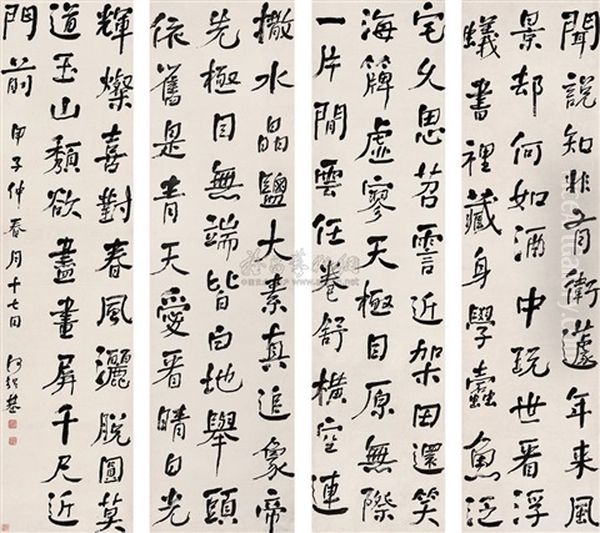 聞說知非肯衛蘧年來風
景却何如酒中玩世看浮
蟻書裡藏身學蠹魚泛
宅久思苕霅近架田還笑
海簰虛寥天極目原無際
一片閒雲任卷舒橫空連
撒水晶鹽大素真追象帝
先極目無端皆白地舉頭
依舊是青天愛看晴日光
輝燦喜對春風灑脫圓莫
道玉山頹欲盡畫屏千尺近
門前 甲子仲春月十七日 何紹基